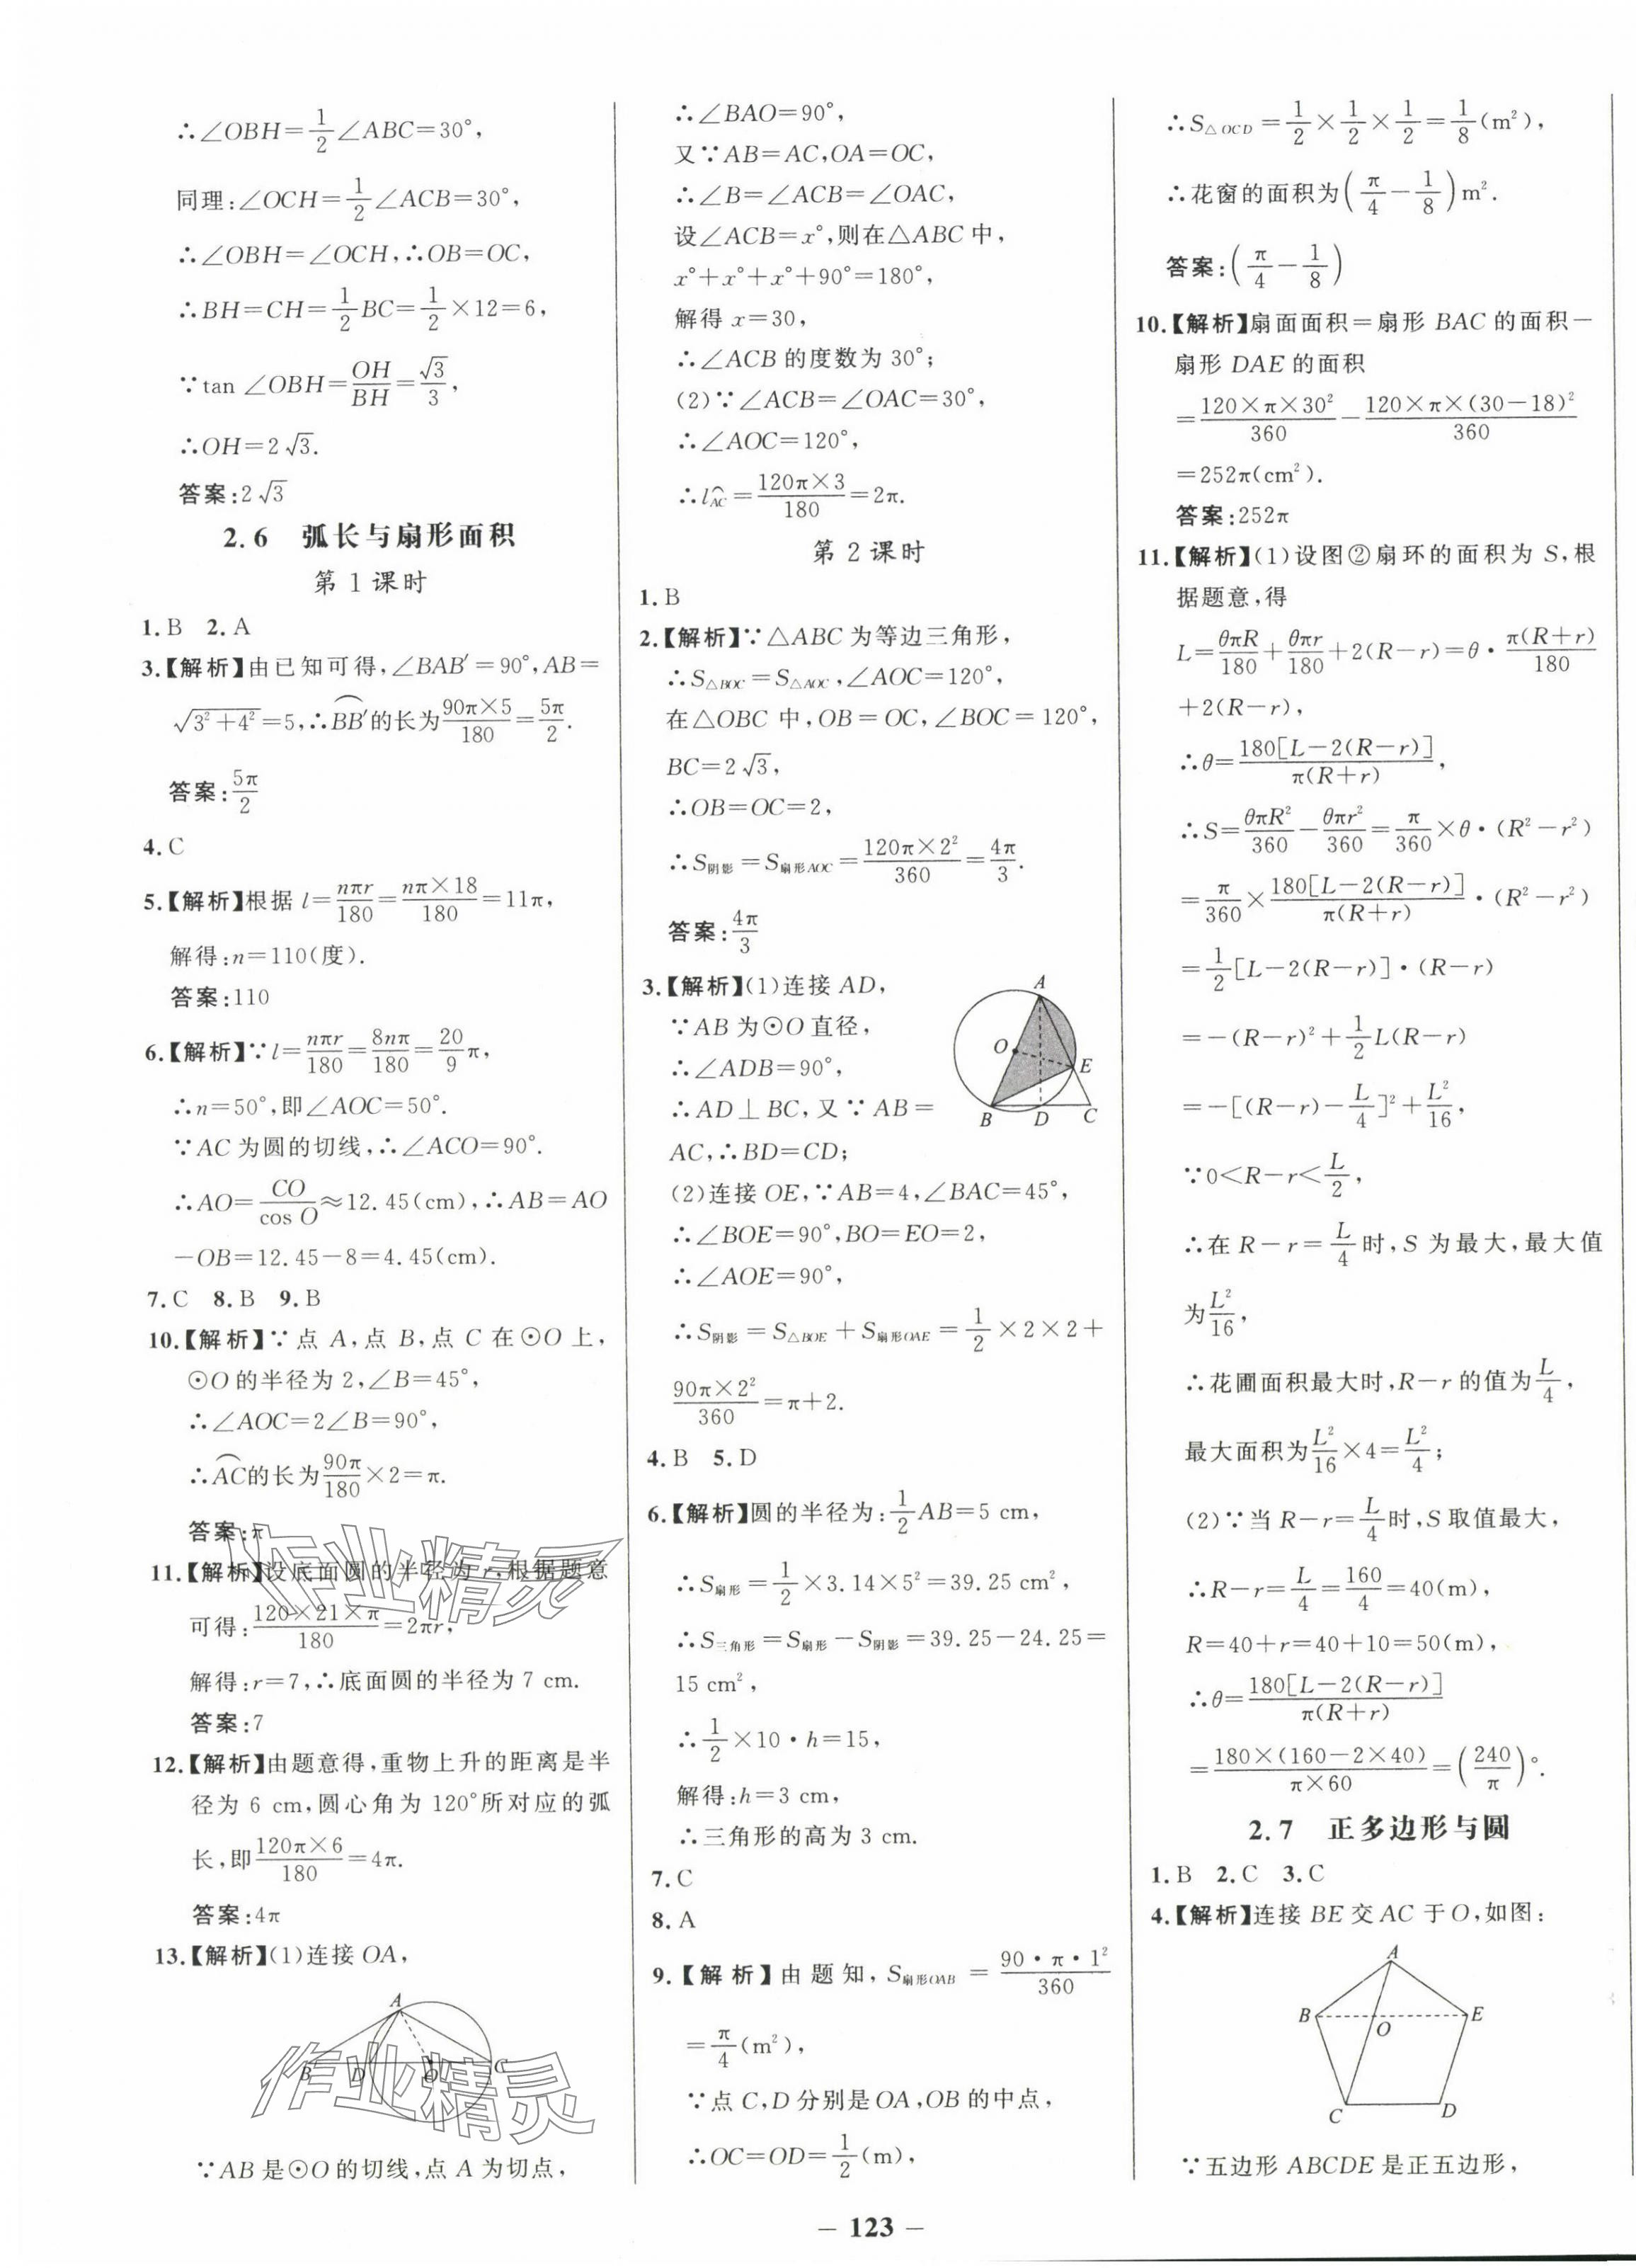 ∴∠OBH=1/2∠ABC=30°,
同理:∠OCH=1/2∠ACB=30°,
∴∠OBH=∠OCH,∴OB=OC,
∴BH=CH=1/2BC=1/2×12=6,
∵tan ∠OBH=OH/BH=√3/3,
∴OH=2√3.
答案:2√3
2.6 弧长与扇形面积
第1课时
1.B 2.A
3.【解析】由已知可得,∠BAB′=90°,AB=
√(3²+4²)=5,∴BB′⌒的长为90π×5/180=5π/2.
答案:5π/2
4.C
5.【解析】根据 l=nπr/180=nπ×18/180=11π,
解得:n=110(度).
答案:110
6.【解析】∵l=nπr/180=8nπ/180=20/9π,
∴n=50°,即∠AOC=50°.
∵AC为圆的切线,∴∠ACO=90°.
∴AO=CO/cos O≈12.45(cm),∴AB=AO
-OB=12.45-8=4.45(cm).
7.C 8.B 9.B
10.【解析】∵点 A,点 B,点 C 在⊙O 上,
⊙O的半径为2,∠B=45°,
∴∠AOC=2∠B=90°,
∴AC⌒的长为90π/180×2=π.
答案:π
11.【解析】设底面圆的半径为 r,根据题意
可得:120×21×π/180=2πr,
解得:r=7,∴底面圆的半径为7 cm.
答案:7
12.【解析】由题意得,重物上升的距离是半
径为 6 cm,圆心角为 120°所对应的弧
长,即120π×6/180=4π.
答案:4π
13.【解析】(1)连接 OA,
A
B D O C
∵AB是⊙O的切线,点 A 为切点,
∴∠BAO=90°,
又∵AB=AC,OA=OC,
∴∠B=∠ACB=∠OAC,
设∠ACB=x°,则在△ABC中,
x°+x°+x°+90°=180°,
解得 x=30,
∴∠ACB的度数为30°;
(2)∵∠ACB=∠OAC=30°,
∴∠AOC=120°,
∴l AC⌒=120π×3/180=2π.
第2课时
1.B
2.【解析】∵△ABC为等边三角形,
∴S△BOC=S△AOC,∠AOC=120°,
在△OBC中,OB=OC,∠BOC=120°,
BC=2√3,
∴OB=OC=2,
∴S阴影=S扇形AOC=120π×2²/360=4π/3.
答案:4π/3
3.【解析】(1)连接 AD,
∵AB为⊙O直径,
∴∠ADB=90°,
∴AD⊥BC,又∵AB=
AC,∴BD=CD;
A
O
E
B D C
(2)连接 OE,∵AB=4,∠BAC=45°,
∴∠BOE=90°,BO=EO=2,
∴∠AOE=90°,
∴S阴影=S△BOE+S扇形OAE=1/2×2×2+
90π×2²/360=π+2.
4.B 5.D
6.【解析】圆的半径为:1/2AB=5 cm,
∴S扇形=1/2×3.14×5²=39.25 cm²,
∴S三角形=S扇形-S阴影=39.25-24.25=
15 cm²,
∴1/2×10·h=15,
解得:h=3 cm,
∴三角形的高为3 cm.
7.C
8.A
9.【解析】由题知,S扇形OAB=90·π·1²/360
=π/4(m²),
∵点C,D分别是OA,OB的中点,
∴OC=OD=1/2(m),
∴S△OCD=1/2×1/2×1/2=1/8(m²),
∴花窗的面积为(π/4-1/8)m².
答案:(π/4-1/8)
10.【解析】扇面面积=扇形BAC的面积-
扇形DAE的面积
=120×π×30²/360-120×π×(30-18)²/360
=252π(cm²).
答案:252π
11.【解析】(1)设图②扇环的面积为 S,根
据题意,得
L=θπR/180+θπr/180+2(R-r)=θ·π(R+r)/180
+2(R-r),
∴θ=180[L-2(R-r)]/π(R+r),
∴S=θπR²/360-θπr²/360=π/360×θ·(R²-r²)
=π/360×180[L-2(R-r)]/π(R+r)·(R²-r²)
=1/2[L-2(R-r)]·(R-r)
=-(R-r)²+1/2L(R-r)
=-[(R-r)-L/4]²+L²/16,
∵0<R-r<L/2,
∴在R-r=L/4时,S为最大,最大值
为L²/16,
∴花圃面积最大时,R-r的值为L/4,
最大面积为L²/16×4=L²/4;
(2)∵当R-r=L/4时,S取值最大,
∴R-r=L/4=160/4=40(m),
R=40+r=40+10=50(m),
∴θ=180[L-2(R-r)]/π(R+r)
=180×(160-2×40)/π×60=(240/π)°.
2.7 正多边形与圆
1.B 2.C 3.C
4.【解析】连接BE交AC于O,如图:
A
B E
O
C D
∵五边形ABCDE是正五边形,
- 123 -
作业精灵
作业精灵